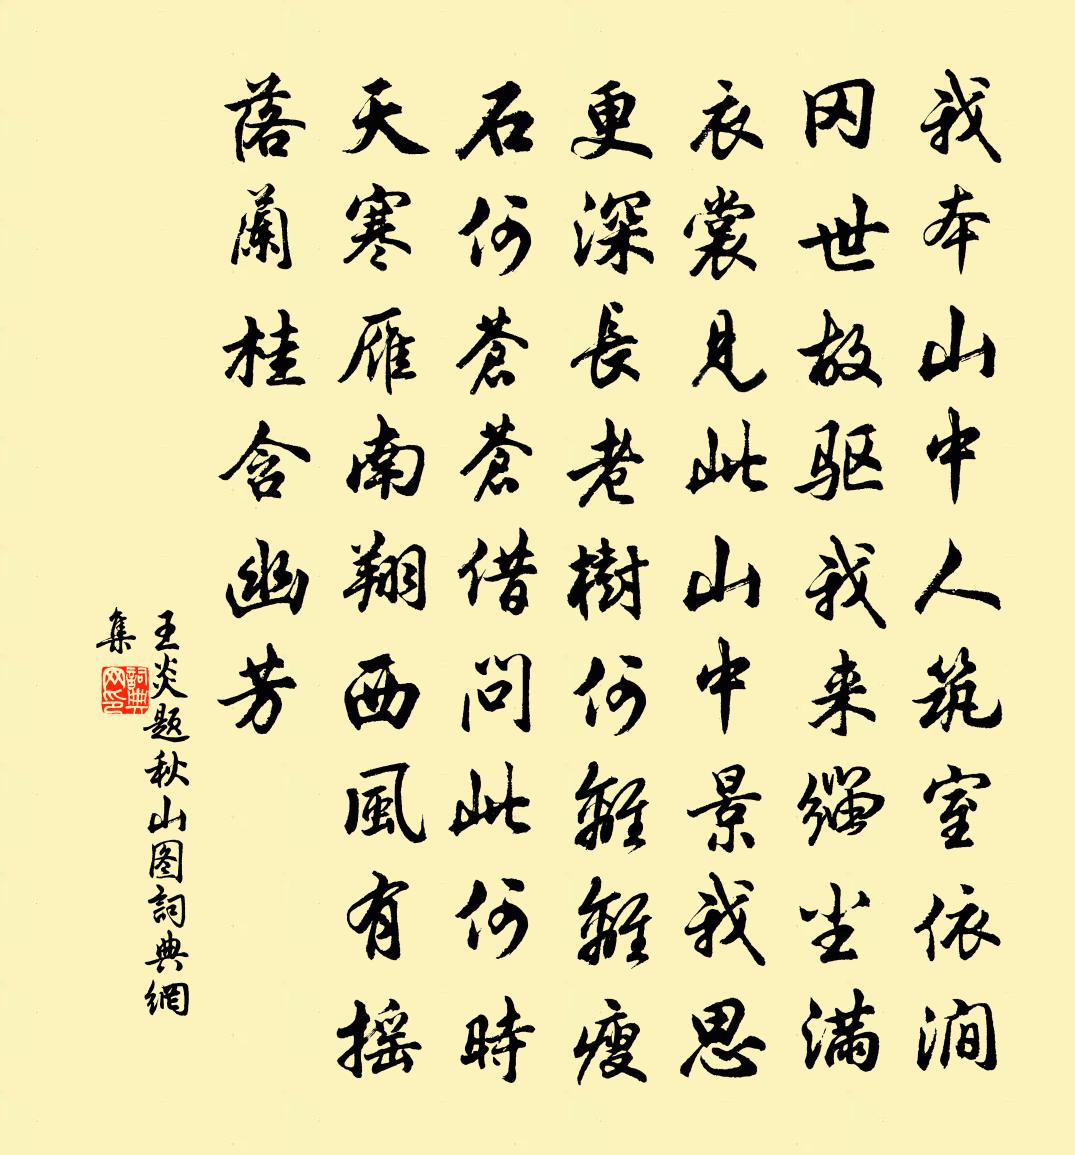 我本山中人筑室依涧
冈世故驱我来缁尘满
衣裳見此山中景我思
更深長老樹何離離瘦
石何蒼蒼借问此何時
天寒雁南翔西風有摇
落蘭桂含幽芳
王炎题秋山图詞典網
集
詞典
网印